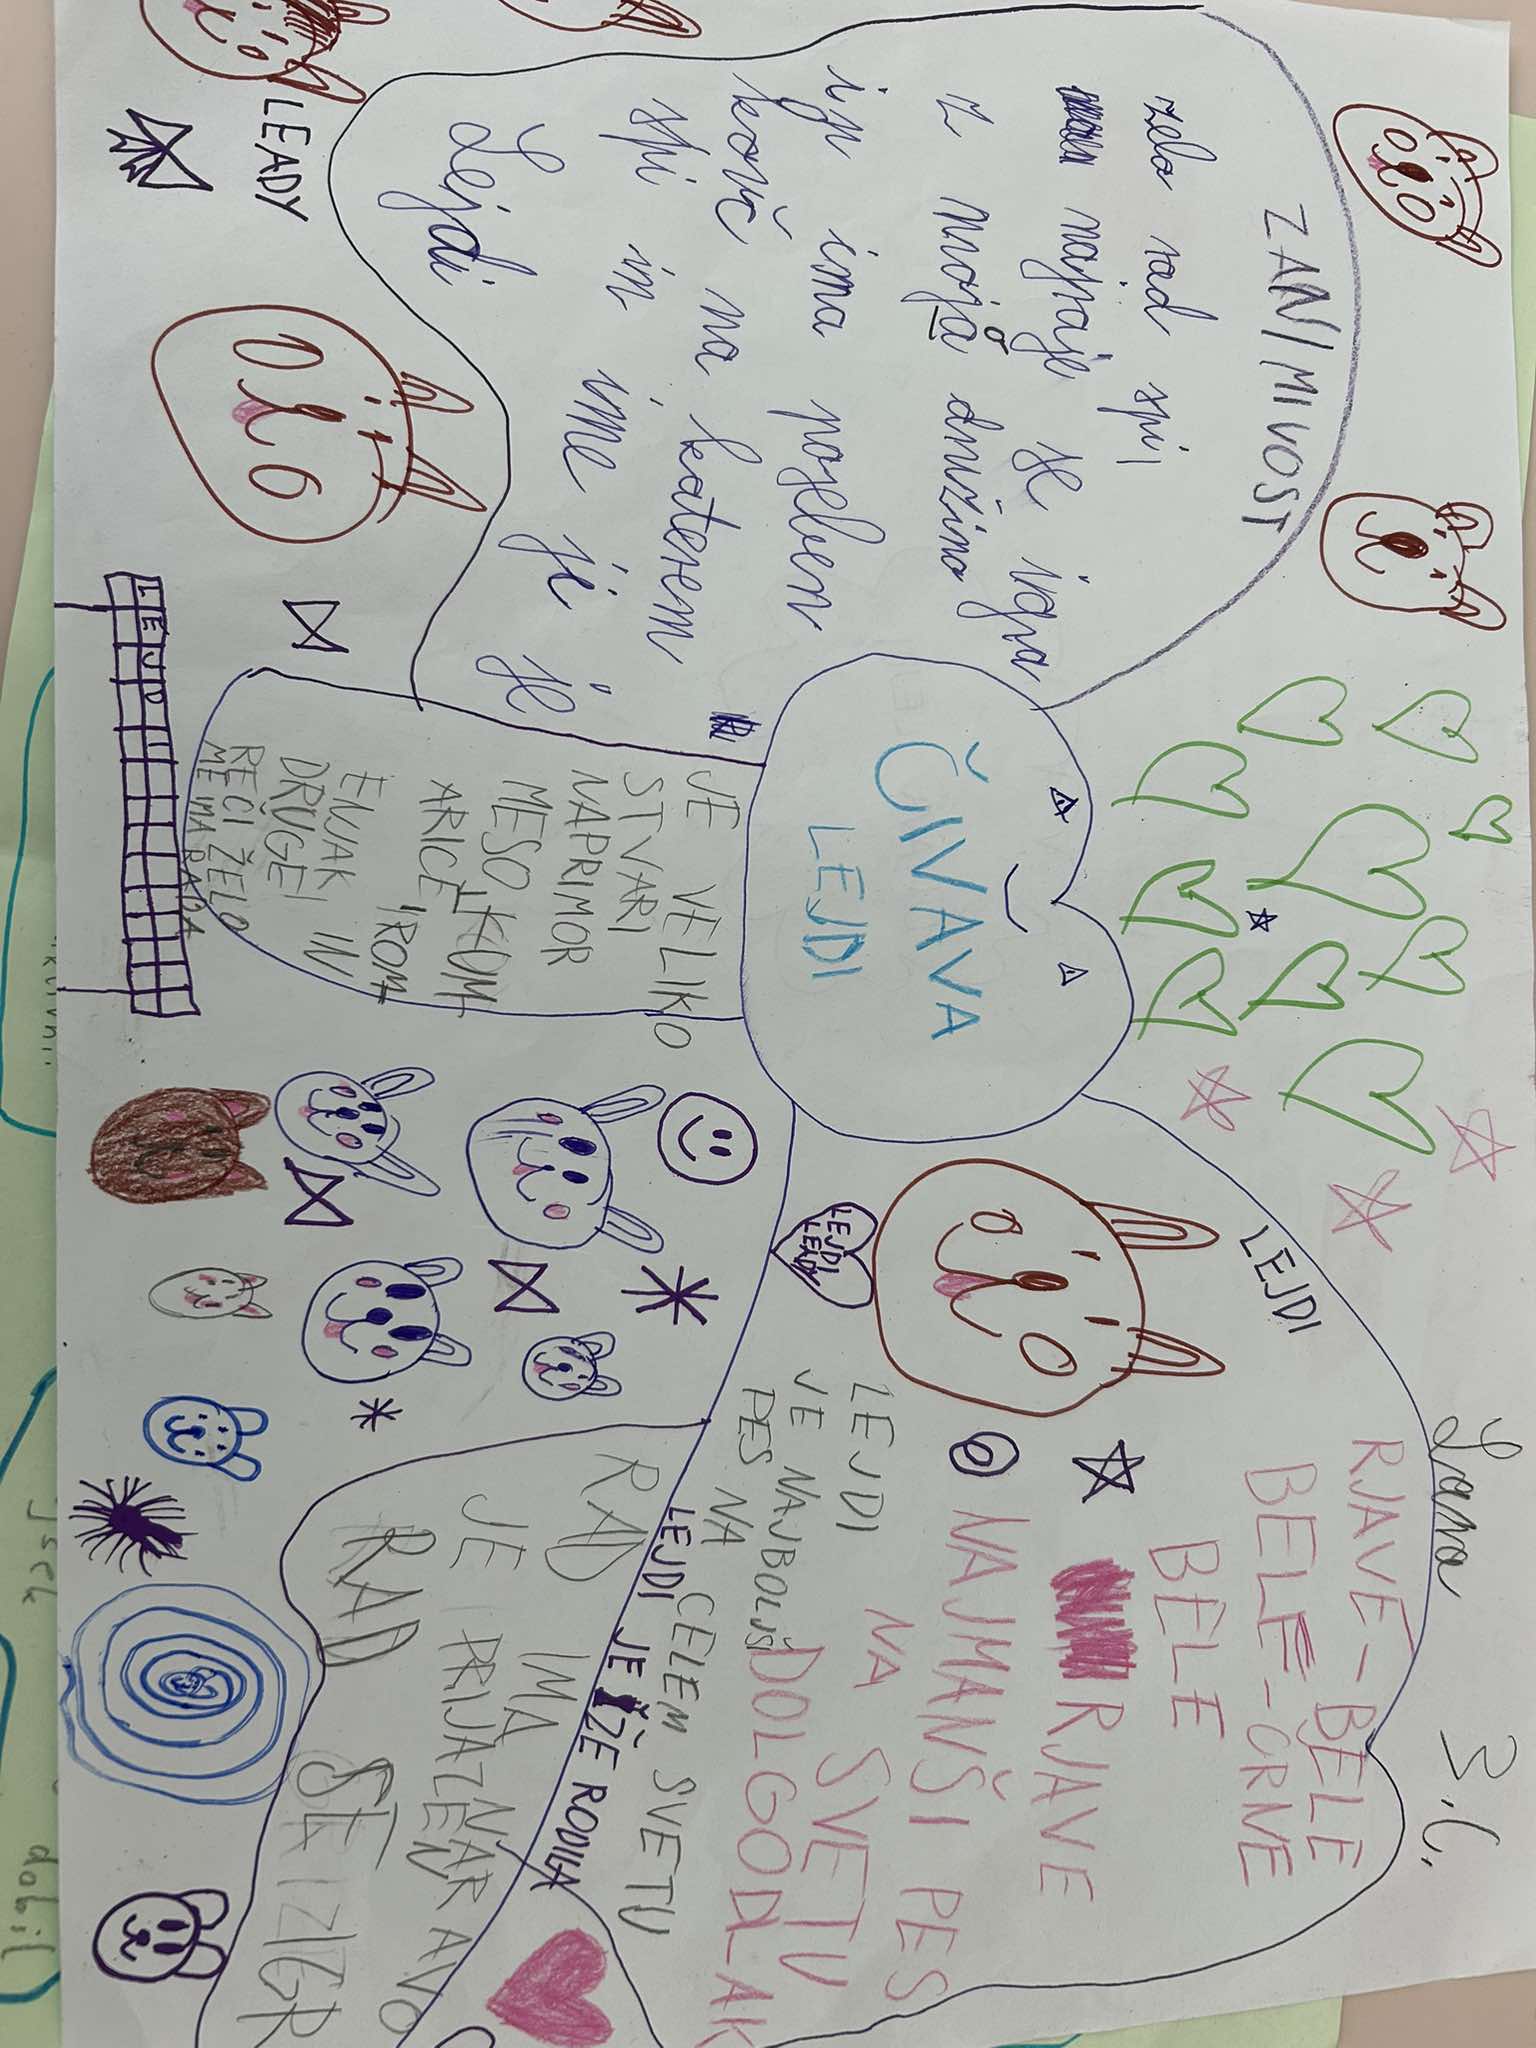 Lana 3.C
ZANIMIVOST
zelo rad spi
najraje se igra
z mojo družino
in ima poseben
kovč na katerem
spi in ime ji je
Lejdi
LEADY
LEJDI
ČIVAVA
LEJDI
JE VELIKO
STVARI
NAPRIMOR
MESO
ARICE
IN
DRUGE
REČI ŽELO
ME IMA RADA
LEJDI
RJAVE-BELE
BELE-ČRNE
BELE
RJAVE
NAJMANŠI PES
NA SVETU
DOLGODLAK
LEJDI
LEJDI
LEJDI
JE NAJBOLJŠI
PES NA CELEM SVETU
LEJDI JE ŽE RODILA
RAD IMA NARAVO
JE PRIJAZEN
RAD SE IZIGR